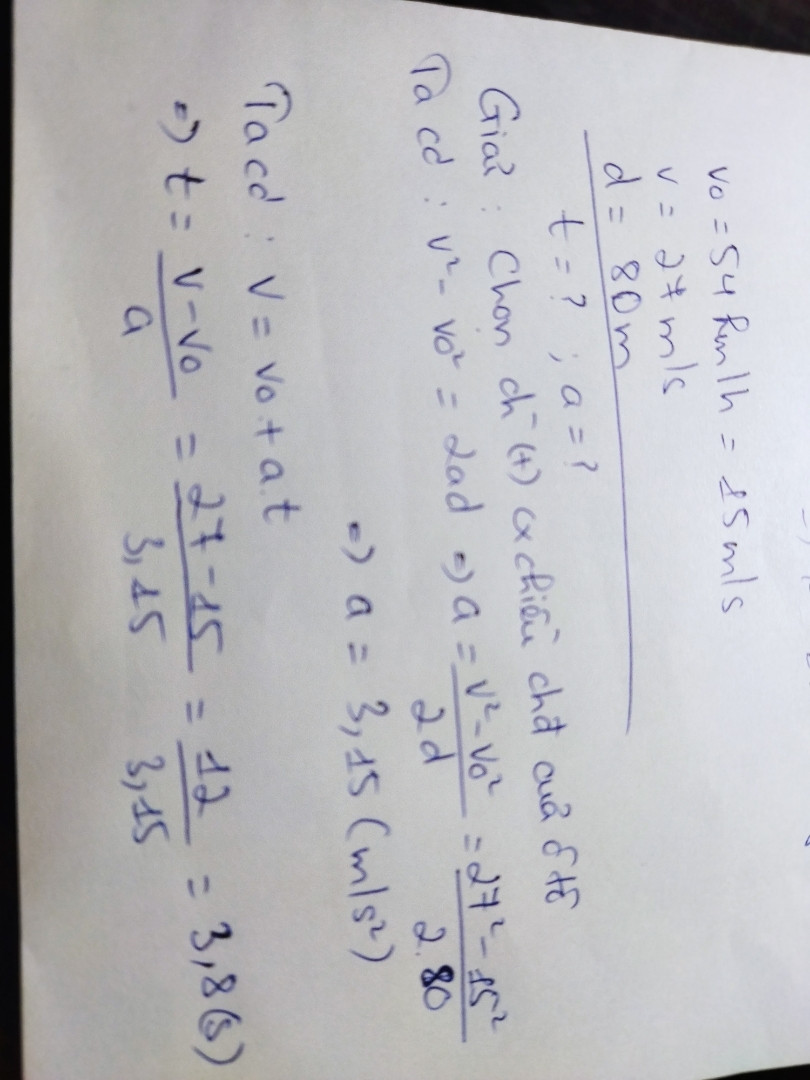 v₀ = 54 km/h = 15 m/s
v = 27 m/s
d = 80m
t = ? ; a = ?
Giải : Chọn ch (+) là chiều chđ của ô tô
Ta có : v² - v₀² = 2ad => a = (v² - v₀²)/2d = (27² - 15²)/2.80
=> a = 3,15 (m/s²)
Ta có : v = v₀ + a.t
=> t = (v - v₀)/a = (27 - 15)/3,15 = 12/3,15 = 3,8 (s)